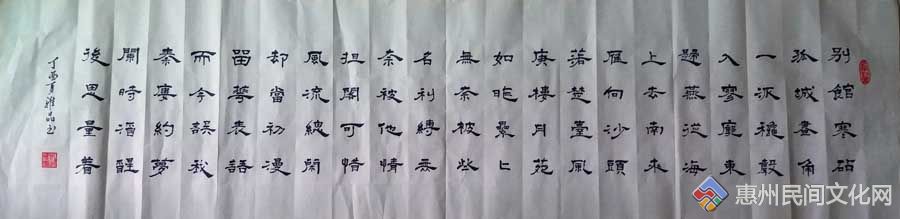 别館寒砧
孤城畫角
一派穐聲
入寥廓東
歸燕從海
上去南來
雁向沙頭
落楚臺風
庾樓月苑
如昨
無奈被些
名利縛無
奈被他情
担閣可惜
風流總閑
却當初漫
留華表語
而今誤我
秦樓約夢
闌時酒醒
後思量着
丁酉夏雅晶书
惠州民间文化网